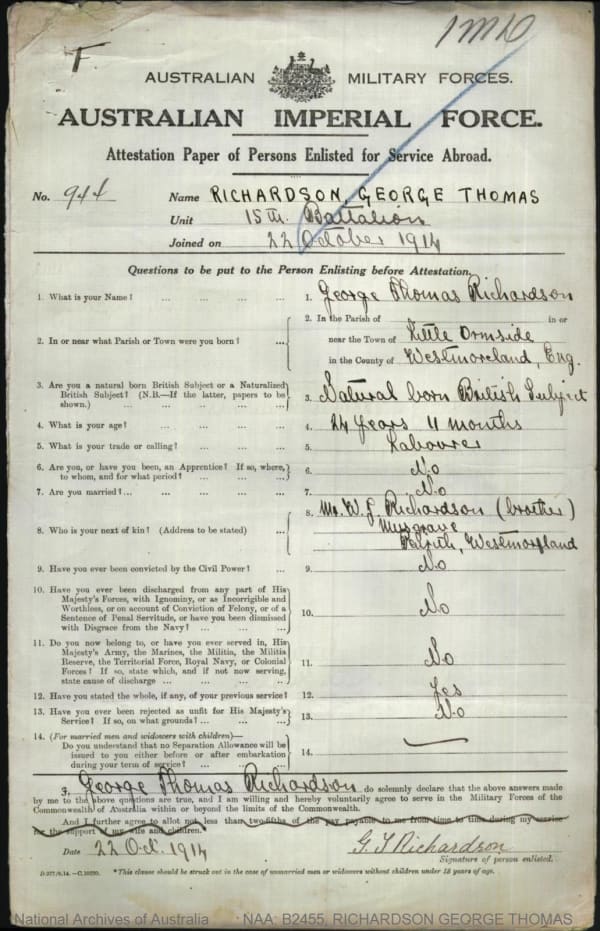 1MD
F
AUSTRALIAN MILITARY FORCES.
AUSTRALIAN IMPERIAL FORCE.
Attestation Paper of Persons Enlisted for Service Abroad.
No. 944 Name RICHARDSON, GEORGE THOMAS
Unit 15th. Battalion
Joined on 22 October 1914
Questions to be put to the Person Enlisting before Attestation.
1. What is your Name? ... ... ... ... 1. George Thomas Richardson
2. In or near what Parish or Town were you born? ... 2. In the Parish of in or
near the Town of Little Ormside
in the County of Westmoreland, Eng.
3. Are you a natural born British Subject or a Naturalized
British Subject? (N.B.—If the latter, papers to be
shown.) ... ... ... ... ... 3. Natural born British Subject
4. What is your age? ... ... ... ... 4. 24 Years 4 months
5. What is your trade or calling? ... ... ... 5. Labourer
6. Are you, or have you been, an Apprentice? If so, where,
to whom, and for what period? ... ... ... 6. No
7. Are you married? ... ... ... ... ... 7. No
8. Who is your next of kin? (Address to be stated) ... 8. Mr. W. J. Richardson (brother)
Musgrave
Penrith, Westmorland
9. Have you ever been convicted by the Civil Power? ... 9. No
10. Have you ever been discharged from any part of His
Majesty's Forces, with Ignominy, or as Incorrigible and
Worthless, or on account of Conviction of Felony, or of a
Sentence of Penal Servitude, or have you been dismissed
with Disgrace from the Navy? ... ... ... 10. No
11. Do you now belong to, or have you ever served in, His
Majesty's Army, the Marines, the Militia, the Militia
Reserve, the Territorial Force, Royal Navy, or Colonial
Forces? If so, state which, and if not now serving,
state cause of discharge ... ... ... ... 11. No
12. Have you stated the whole, if any, of your previous service? 12. Yes
13. Have you ever been rejected as unfit for His Majesty's
Service? If so, on what grounds? ... ... ... 13. No
14. (For married men and widowers with children)—
Do you understand that no Separation Allowance will be
issued to you either before or after embarkation
during your term of service? ... ... ... 14. —
I, George Thomas Richardson do solemnly declare that the above answers made
by me to the above questions are true, and I am willing and hereby voluntarily agree to serve in the Military Forces of the
Commonwealth of Australia within or beyond the limits of the Commonwealth.
And I further agree to allot not less than two-fifths of the pay payable to me from time to time during my service
for the support of my wife and children.
Date 22 Oct. 1914 G. T. Richardson
Signature of person enlisted.
*This clause should be struck out in the case of unmarried men or widowers without children under 18 years of age.
National Archives of Australia NAA: B2455, RICHARDSON GEORGE THOMAS